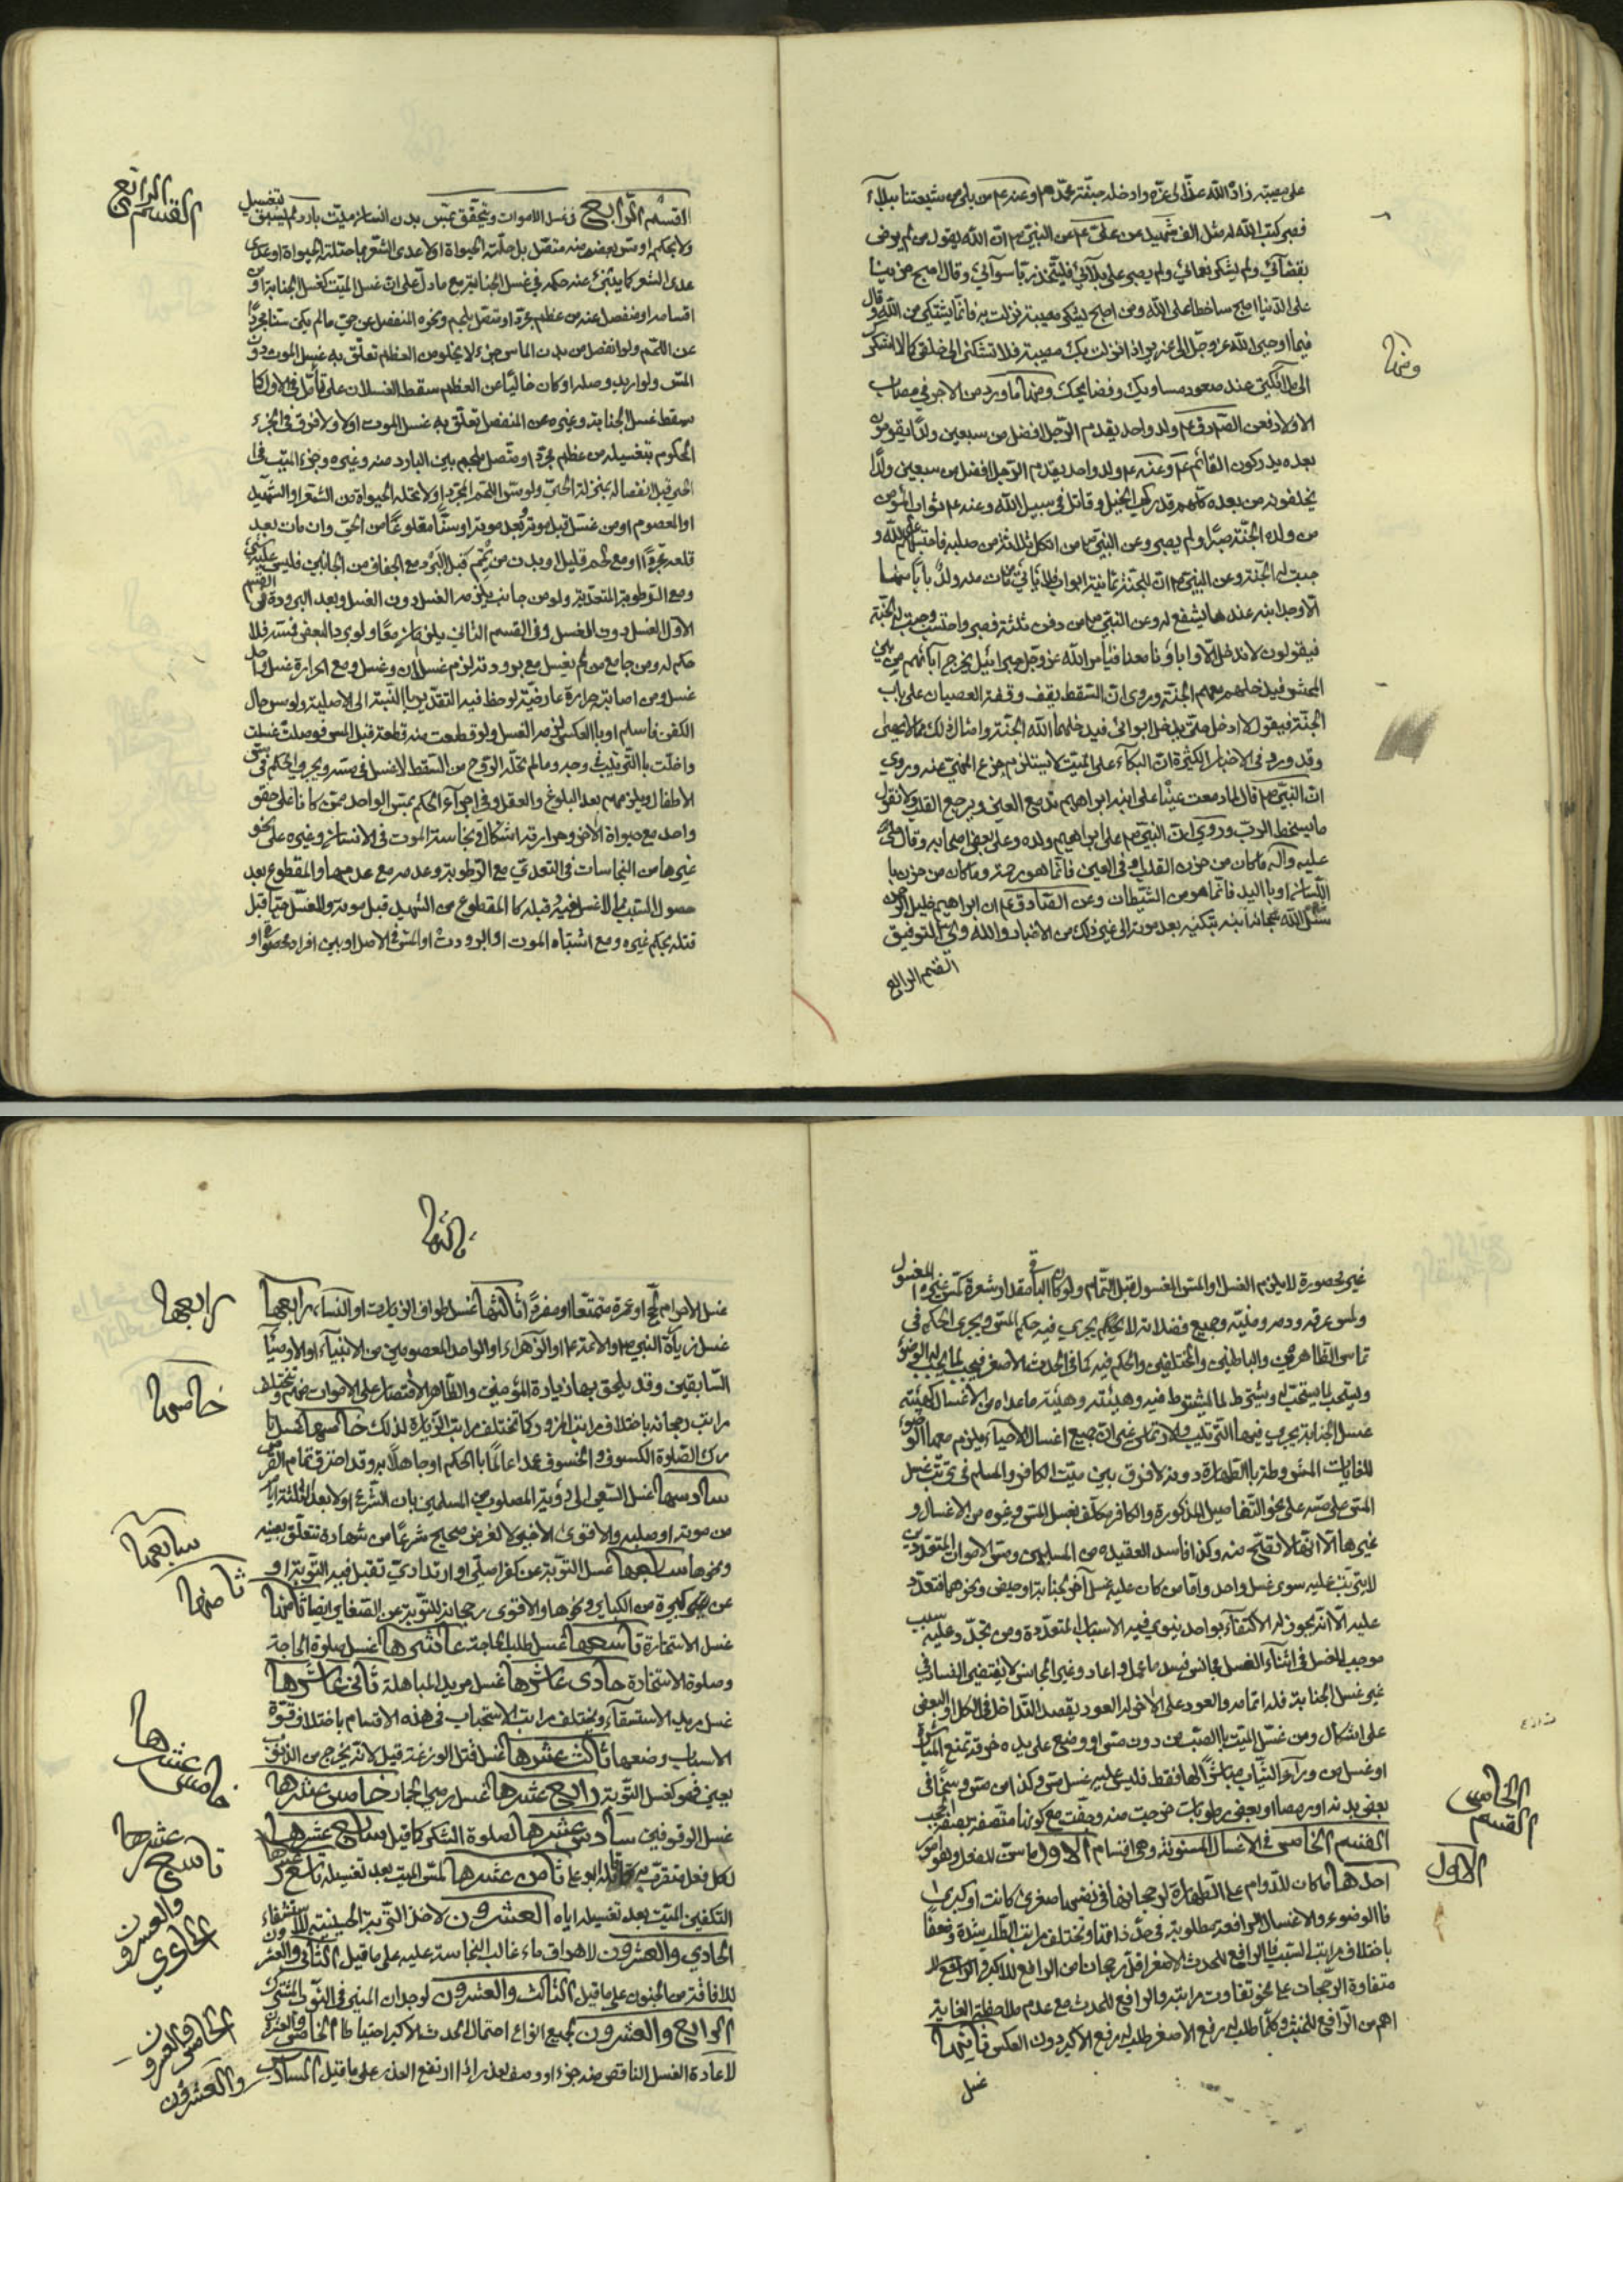 على مصيبته زاده الله عزّا الى عزّه وادخله جنّته مع محمد ص وعنه ع من بلى من شيعتنا ببلاء
فصبر كتب الله له مثل الف شهيد وعن علي ع عن النبي ص ان الله يقول من لم يرض
بقضائي ولم يشكر نعمائي ولم يصبر على بلائي فليتخذ ربّا سوائي وقال اصبح حزينا
على الدنيا اصبح ساخطا على الله ومن اصبح يشكو مصيبة نزلت به فانما يشتكي من الله وقال
فيما اوحى الله عز وجل الى عزير اذا نزلت بك مصيبة فلا تشكني الى خلقي كما لا اشكوك
الى ملائكتي عند صعود مساويك وفضايحك ومنها ما ورد من الاجر في مصاب
الاولاد فعن الصادق ع ولد واحد يقدمه الرجل افضل من سبعين ولدا يبقون
بعده يدركون القائم ع وعنه ع ولد واحد يقدمه الرجل افضل من سبعين ولدا
يخلفونه من بعده كلهم قد ركب الخيل وقاتل في سبيل الله وعنه ع ثواب المؤمن
من ولده الجنة صبر او لم يصبر وعن النبي ص من اثكل ثلاثة من صلبه فاحتسبهم على الله و
جبت له الجنة وعن النبي ص ان للجنة ثمانية ابواب
الا وجد ابنه عندها يشفع له وعن النبي ص من دفن ثلثة فصبر واحتسب وجبت له الجنة
فيقولون لا ندخل الا وآباؤنا معنا فيأمر الله عز وجل جبرائيل يخرج آبائهم من بين
المحشر فيدخلهم معهم الجنة وروى ان السقط يقف وقفة العصيان على باب
الجنة فيقول لا ادخل حتى يدخل ابوائي فيدخلهما الله الجنة وامثال ذلك مما لا يحصى
وقد ورد في الاخبار الكثيرة ان البكاء على الميت لا يستلزم جزع المنهي عنه وروي
ان النبي ص قال لما دمعت عيناه على ابنه ابراهيم تدمع العين ويوجع القلب ولا نقول
ما يسخط الرب وروي ان النبي ص على ابراهيم ولده وعلى بعض اصحابه وقال صلى الله
عليه وآله ما كان من حزن القلب او في العين فانما هو رحمة وما كان من حزن با
للسان او باليد فانما هو من الشيطان وعن الصادق ع ان ابراهيم خليل الرحمن
سئل الله بنته تبكيه بعد موته الى غير ذلك من الاخبار والله ولي التوفيق
القسم الرابع
ومنها
القسم الرابع
القسم الرابع في غسل الاموات ويتحقق بمس بدن انسان ميت بارد لم يسبق بتغسيل
ولا بحكمه او مس بعضه منه متصل بل حلته الحيوة او لا عدى الشعر
عدى الشعر كما ينبئ عنه حكمه في غسل الجنابة مع ما دل على ان غسل الميت كغسل الجنابة
اقسامه او منفصل عنه من عظم مجرد او متصل بلحم ونحوه المنفصل عن حي ما لم يكن سنا مجردا
عن اللحم ولو انفصل من بدن الماس جزء لا يخلو من العظم تعلق به غسل الموت دون
المس ولو اريد وصله او كان خاليا عن العظم سقط الغسلان على تأمل في الاول كما
سقط غسل الجنابة وغيره عن المنفصل تعلق به غسل الموت اولا ولا فرق في الجزء
المحكوم بتغسيله من عظم مجرد او متصل بلحم بين البارد منه وغيره وجزء الميت في
الحي قبل انفصاله بمنزلة الحي ولو مس اللحم المجرد او لا تحله الحيوة من الشعر او الشهيد
او المعصوم او من غسل قبل موته بعد موته او سنا مقلوعا من الحي وان مات بعد
قلعه مجردا او مع لحم قليل او بدن من يمم كقبل البرد مع الجفاف من الجانبين فليس عليه شيء
ومع الرطوبة المتعدية ولو من جانب يلزمه الغسل دون الغسل وبعد البرودة في القسم
الاول الغسل دون الغسل وفي القسم الثاني يلزمان معا ولو برد البعض فمسه فلا
حكم له ومن جامع من لم يغسل مع برودته لزمه غسلان وغسل ومع الحرارة غسل واحد
غسل ومن اصابته حرارة عارضية لوحظ فيه التقدير بالنسبة الى الاصلية ولو مس حال
الكفن فاسلم او بالعكس لزمه الغسل ولو قطعت منه قطعة قبل المس فوصلت غسلت
واخلت بالترتيب وجه وما لم تحله الروح من السقط لا غسل في مسه ويجري الحكم في مس
الاطفال ويلزمهم بعد البلوغ والعقل وفي اجراء الحكم بمس الواحد ممن كانا على حقو
واحد مع حيوة الاخر وحرارته اشكال ونجاسة الموت في الانسان وغيره على نحو
غيرها من النجاسات في التعدي مع الرطوبة وعدمه مع عدمها والمقطوع بعد
حصول السبب كما المقطوع من الشهيد قبل موته والمغسل حيا قبل
قتله بحكم غيره ومع اشتباه الموت او البرودة او المس في الاصل او بين افراد محصورة او
غير محصورة لا يلزم الغسل او المس المغسول قبل التمام ولو كان الباقي مقدار شعرة كمس غير المغسول
ولمس عرقه ودمه ومنيّه وجميع فضلاته لا يحكم يجري فيه حكم المس ويجري الحكم في
تماس الظاهرين والباطنين والمختلفين والحكم فيه كما في الحدث الاصغر فيجب لما يجب له الوضوء
ويستحب لما يستحب له ويشترط لما اشترط فيه وهيئته وهيئة ما عداه من الاغسال كهيئة
غسل الجنابة يجري فيها الترتيب والارتماس غير ان جميع اغسال الاحياء يلزم معها الوضوء
للغايات المشروطة بالطهارة دونه لا فرق بين ميت الكافر والمسلم في ترتب غسل
المس على مسه على نحو التفاصيل المذكورة والكافر مكلف بغسل المس وغيره من الاغسال و
غيرها الا انها لا تصح منه وكذا فاسد العقيدة من المسلمين ومس الاموات المتعددين
لا يترتب عليه سوى غسل واحد واما من كان عليه غسل آخر لجنابة او حيض ونحوهما فتعدد
عليه الا انه يجوز له الاكتفاء بواحد ينوي فيه الاسباب المتعددة ومن تجدد عليه سبب
موجب للغسل في اثناء الغسل مجانس فسد ما عمل واعاد وغير المجانس لا يقتضي الفساد في
غير غسل الجنابة فله اتمامه والعود على الاخر وله العود بقصد التداخل في الكل او البعض
على اشكال ومن غسل الميت بالصب من دون مس او وضع على يده خرقة تمنع المباشرة
او غسل من وراء الثياب مباشرا لها فقط فليس عليه غسل مس وكذا من مس
بعض بدنه او بعض رطوبات خرجت منه وجفت مع كونها متصفة بصفة الحجب
القسم الخامس في الاغسال المسنونة وهي اقسام الاول ما سن للفعل وهو امور
احدها ما كان للدوام على الطهارة لرجحانها في نفسها صغرى كانت او كبرى
فالوضوء والاغسال الرافعة مطلوبة في حد ذاتها وتختلف مراتب الطلب شدة وضعفا
باختلاف مراتب السبب فالرافع للحدث الاصغر اقل رجحانا من الرافع للاكبر والرافع للا
متفاوتة الرجحان على نحو تفاوت مراتبه والرافع للحدث مع عدم ملاحظة الغاية
اهم من الرافع للخبث وكلما طلب له رفع الاصغر طلب له رفع الاكبر دون العكس ثانيها
غسل
القسم الخامس
الاول
ثالثها
غسل الاحرام لحج او عمرة متمتعا او مفردا ثالثها غسل طواف الزيارة او النساء رابعها
غسل زيارة النبي ص والائمة ع او الزهراء او الواحد المعصومين من الانبياء او الاوصياء
السابقين وقد يلحق بها زيارة المؤمنين والظاهر الاقتصار على الاموات منهم وتختلف
مراتب رجحانه باختلاف مراتب المزور كما تختلف مراتب الزيارة لذلك خامسها غسل تا
رك الصلوة الكسوف والخسوف عمدا عالما بالحكم او جاهلا به وقد احترق تمام القرص
سادسها غسل السعي الى رؤية المصلوب من المسلمين بان الشرع او لا بعد الثلثة ايام
من موته او صلبه والاقوى الاخير لا لغرض صحيح شرعا من شهادة تتعلق بعينه
ونحوها سابعها غسل التوبة عن كفر اصلي او ارتدادي تقبل فيه التوبة او
عن كبيرة من الكبائر ونحوها والاقوى رجحانه للتوبة عن الصغاير ايضا ثامنها
غسل الاستخارة تاسعها غسل طلب الحاجة عاشرها غسل صلوة الحاجة
وصلوة الاستخارة حادي عاشرها غسل مريد المباهلة ثاني عاشرها
غسل مريد الاستسقاء وتختلف مراتب الاستحباب في هذه الاقسام باختلاف قوة
الاسباب وضعفها ثالث عشرها غسل قتل الوزغة قيل لانه يخرج من الذنوب
يعني فهو كغسل التوبة رابع عشرها غسل رمي الجمار خامس عشرها
غسل الوقوفين سادس عشرها لصلوة الشكر كما قيل سابع عشرها
لكل فعل متقرب به قاله ابو علي ثامن عشرها لمس الميت بعد تغسيله تاسع عشرها
التكفين الميت بعد تغسيله اياه العشرون لاخذ التربة الحسينية للاستشفاء
الحادي والعشرون لاهراق ماء غالب النجاسة عليه على ما قيل الثاني والعشرون
للافاقة من الجنون على ما قيل الثالث والعشرون لوجدان المني في الثوب المشترك
الرابع والعشرون لجميع انواع احتمال الحدث الاكبر احتياطا الخامس والعشرون
لاعادة الغسل الناقص منه جزء او وصف بعذر اذا ارتفع العذر على ما قيل السادس والعشرون
رابعها
خامسها
سابعها
ثامنها
خامس عشرها
تاسع عشرها
الحادي والعشرون
الخامس والعشرون